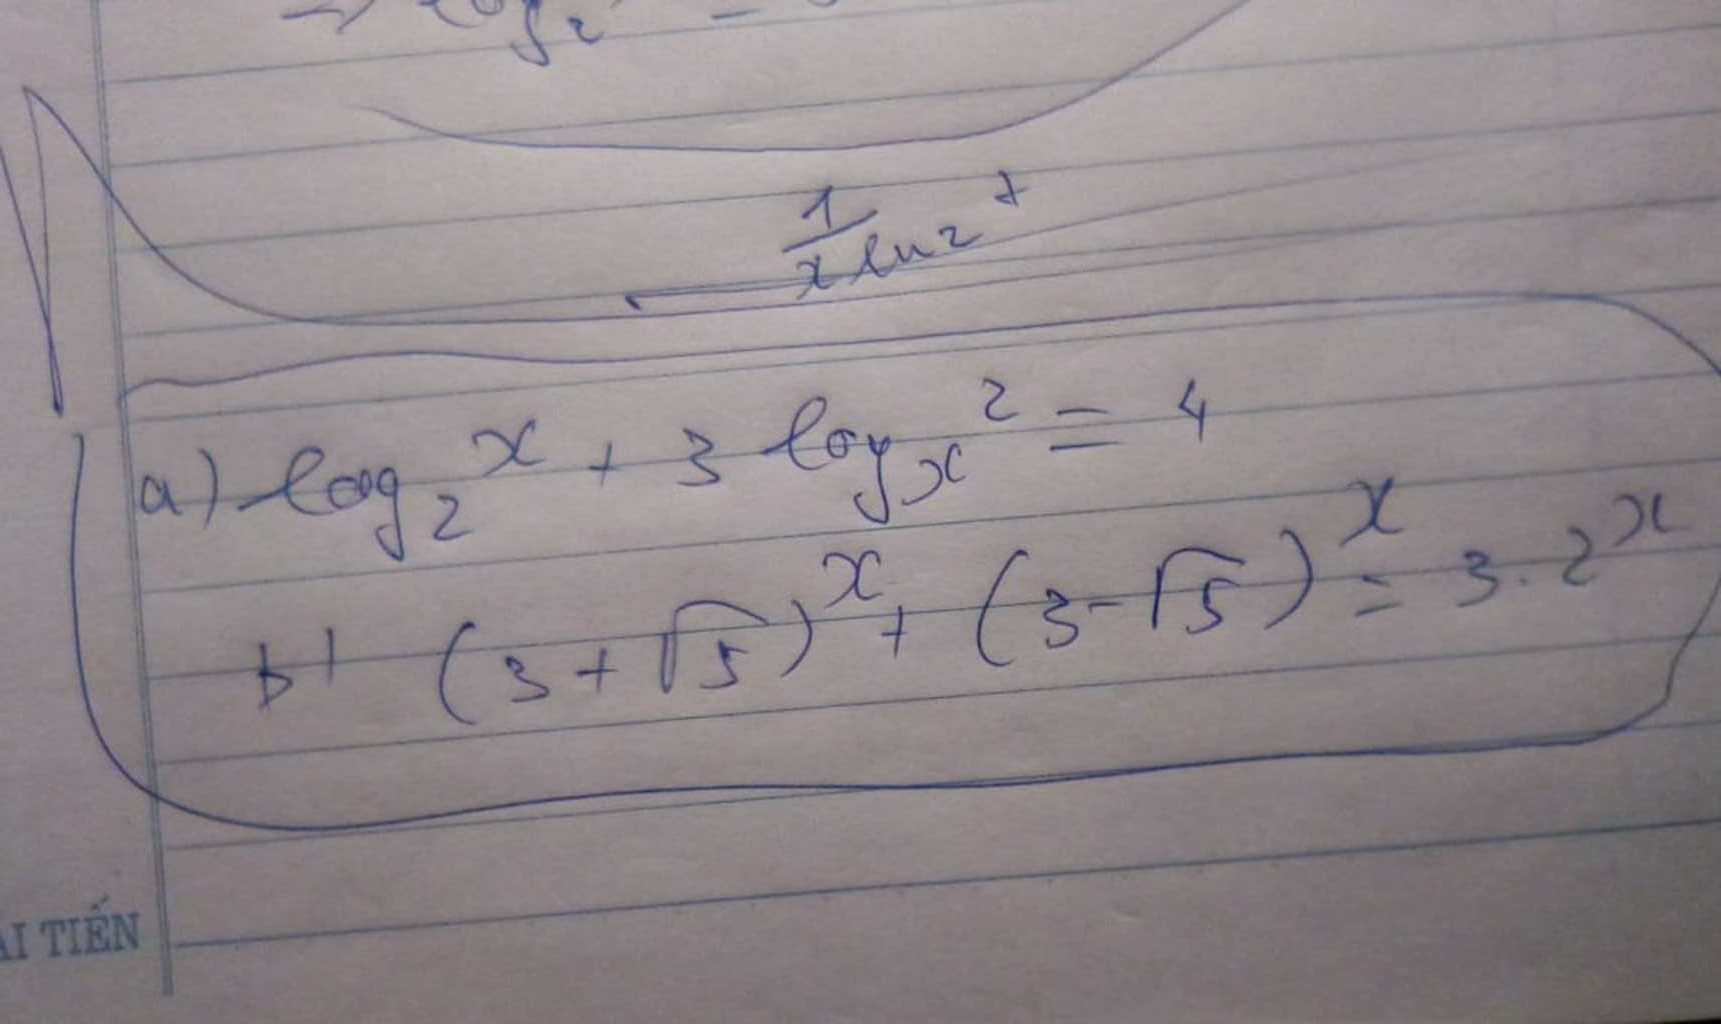 → log₂
1/(x ln 2) +
a) log₂ x + 3 logₓ 2 = 4
b) (3 + √5)ˣ + (3 - √5)ˣ = 3 . 2ˣ
TIẾN